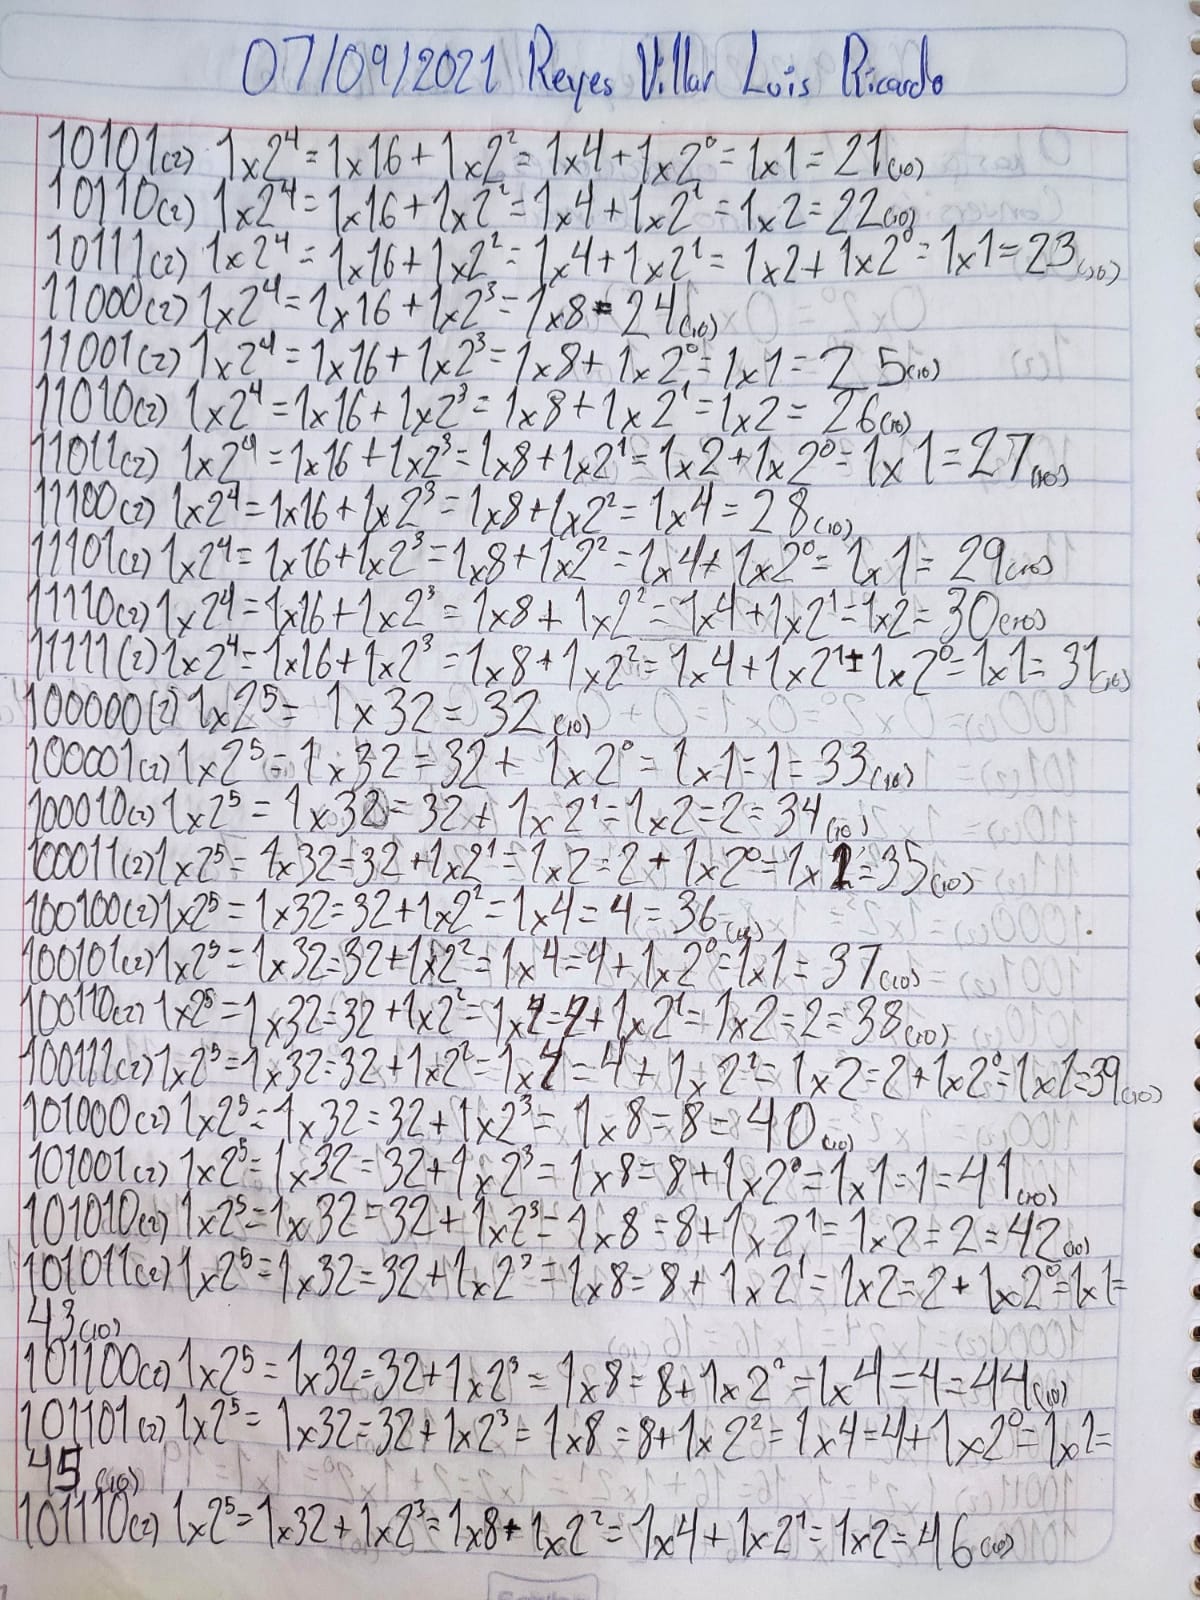 07/09/2021 Reyes Villar Luis Ricardo
10101(2) 1x2⁴=1x16+1x2²=1x4+1x2⁰=1x1=21(10)
10110(2) 1x2⁴=1x16+1x2²=1x4+1x2¹=1x2=22(10)
10111(2) 1x2⁴=1x16+1x2²=1x4+1x2¹=1x2+1x2⁰=1x1=23(10)
11000(2) 1x2⁴=1x16+1x2³=1x8=24(10)
11001(2) 1x2⁴=1x16+1x2³=1x8+1x2⁰=1x1=25(10)
11010(2) 1x2⁴=1x16+1x2³=1x8+1x2¹=1x2=26(10)
11011(2) 1x2⁴=1x16+1x2³=1x8+1x2¹=1x2+1x2⁰=1x1=27(10)
11100(2) 1x2⁴=1x16+1x2³=1x8+1x2²=1x4=28(10)
11101(2) 1x2⁴=1x16+1x2³=1x8+1x2²=1x4+1x2⁰=1x1=29(10)
11110(2) 1x2⁴=1x16+1x2³=1x8+1x2²=1x4+1x2¹=1x2=30(10)
11111(2) 1x2⁴=1x16+1x2³=1x8+1x2²=1x4+1x2¹±1x2⁰=1x1=31(10)
100000(2) 1x2⁵=1x32=32(10)
100001(2) 1x2⁵=1x32=32+1x2⁰=1x1=1=33(10)
100010(2) 1x2⁵=1x32=32+1x2¹=1x2=2=34(10)
100011(2) 1x2⁵=1x32=32+1x2¹=1x2=2+1x2⁰=1x1=35(10)
100100(2) 1x2⁵=1x32=32+1x2²=1x4=4=36(10)
100101(2) 1x2⁵=1x32=32+1x2²=1x4=4+1x2⁰=1x1=37(10)
100110(2) 1x2⁵=1x32=32+1x2²=1x4=4+1x2¹=1x2=2=38(10)
100111(2) 1x2⁵=1x32=32+1x2²=1x4=4+1x2²=1x2=2+1x2⁰=1x1=39(10)
101000(2) 1x2⁵=1x32=32+1x2³=1x8=8=40(10)
101001(2) 1x2⁵=1x32=32+1x2³=1x8=8+1x2⁰=1x1=1=41(10)
101010(2) 1x2⁵=1x32=32+1x2³=1x8=8+1x2¹=1x2=2=42(10)
101011(2) 1x2⁵=1x32=32+1x2³=1x8=8+1x2¹=1x2=2+1x2⁰=1x1=
43(10)
101100(2) 1x2⁵=1x32=32+1x2³=1x8=8+1x2²=1x4=4=44(10)
101101(2) 1x2⁵=1x32=32+1x2³=1x8=8+1x2²=1x4=4+1x2⁰=1x1=
45(10)
101110(2) 1x2⁵=1x32+1x2³=1x8+1x2²=1x4+1x2¹=1x2=46(10)